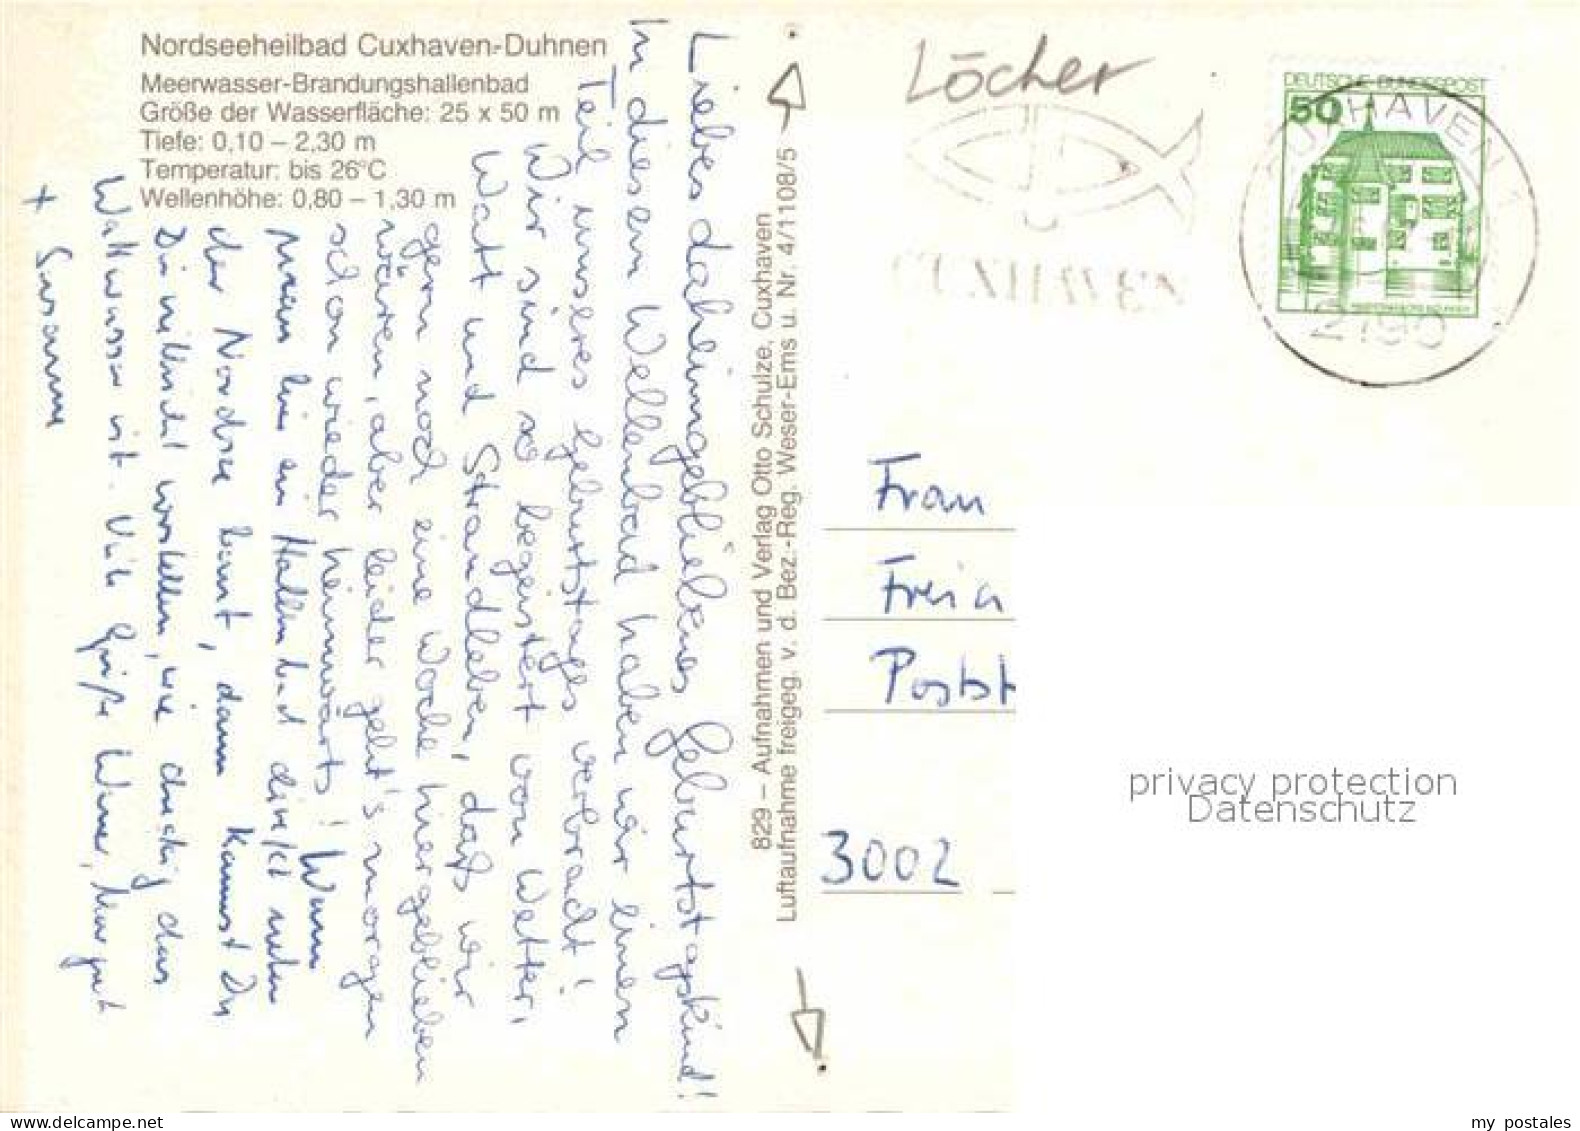 Nordseeheilbad Cuxhaven-Duhnen
Meerwasser-Brandungshallenbad
Größe der Wasserfläche: 25 x 50 m
Tiefe: 0,10 – 2,30 m
Temperatur: bis 26°C
Wellenhöhe: 0,80 – 1,30 m
Liebes daheimgebliebenes Geburtstagskind!
In diesem Wellenbad haben wir einen
Teil unseres Geburtstages verbracht!
Wir sind so begeistert von Wetter,
Watt und Strandleben, daß wir
gern noch eine Woche hiergeblieben
wären, aber leider geht's morgen
schon wieder heimwärts! Wenn
man hier ein Hallenbad direkt neben
der Nordsee baut, dann kannst Du
Dir vielleicht vorstellen, wie dreckig das
Wattwasser ist. Viele Grüße Werner, Margret
+ Susanne
829 – Aufnahmen und Verlag Otto Schulze, Cuxhaven
Luftaufnahme freigeg. v. d. Bez.-Reg. Weser-Ems u. Nr. 4/1108/5
Löcher
DEUTSCHE BUNDESPOST
50
CUXHAVEN 1
2190
CUXHAVEN
Frau
Freia
Postst
3002
privacy protection
Datenschutz
my postales